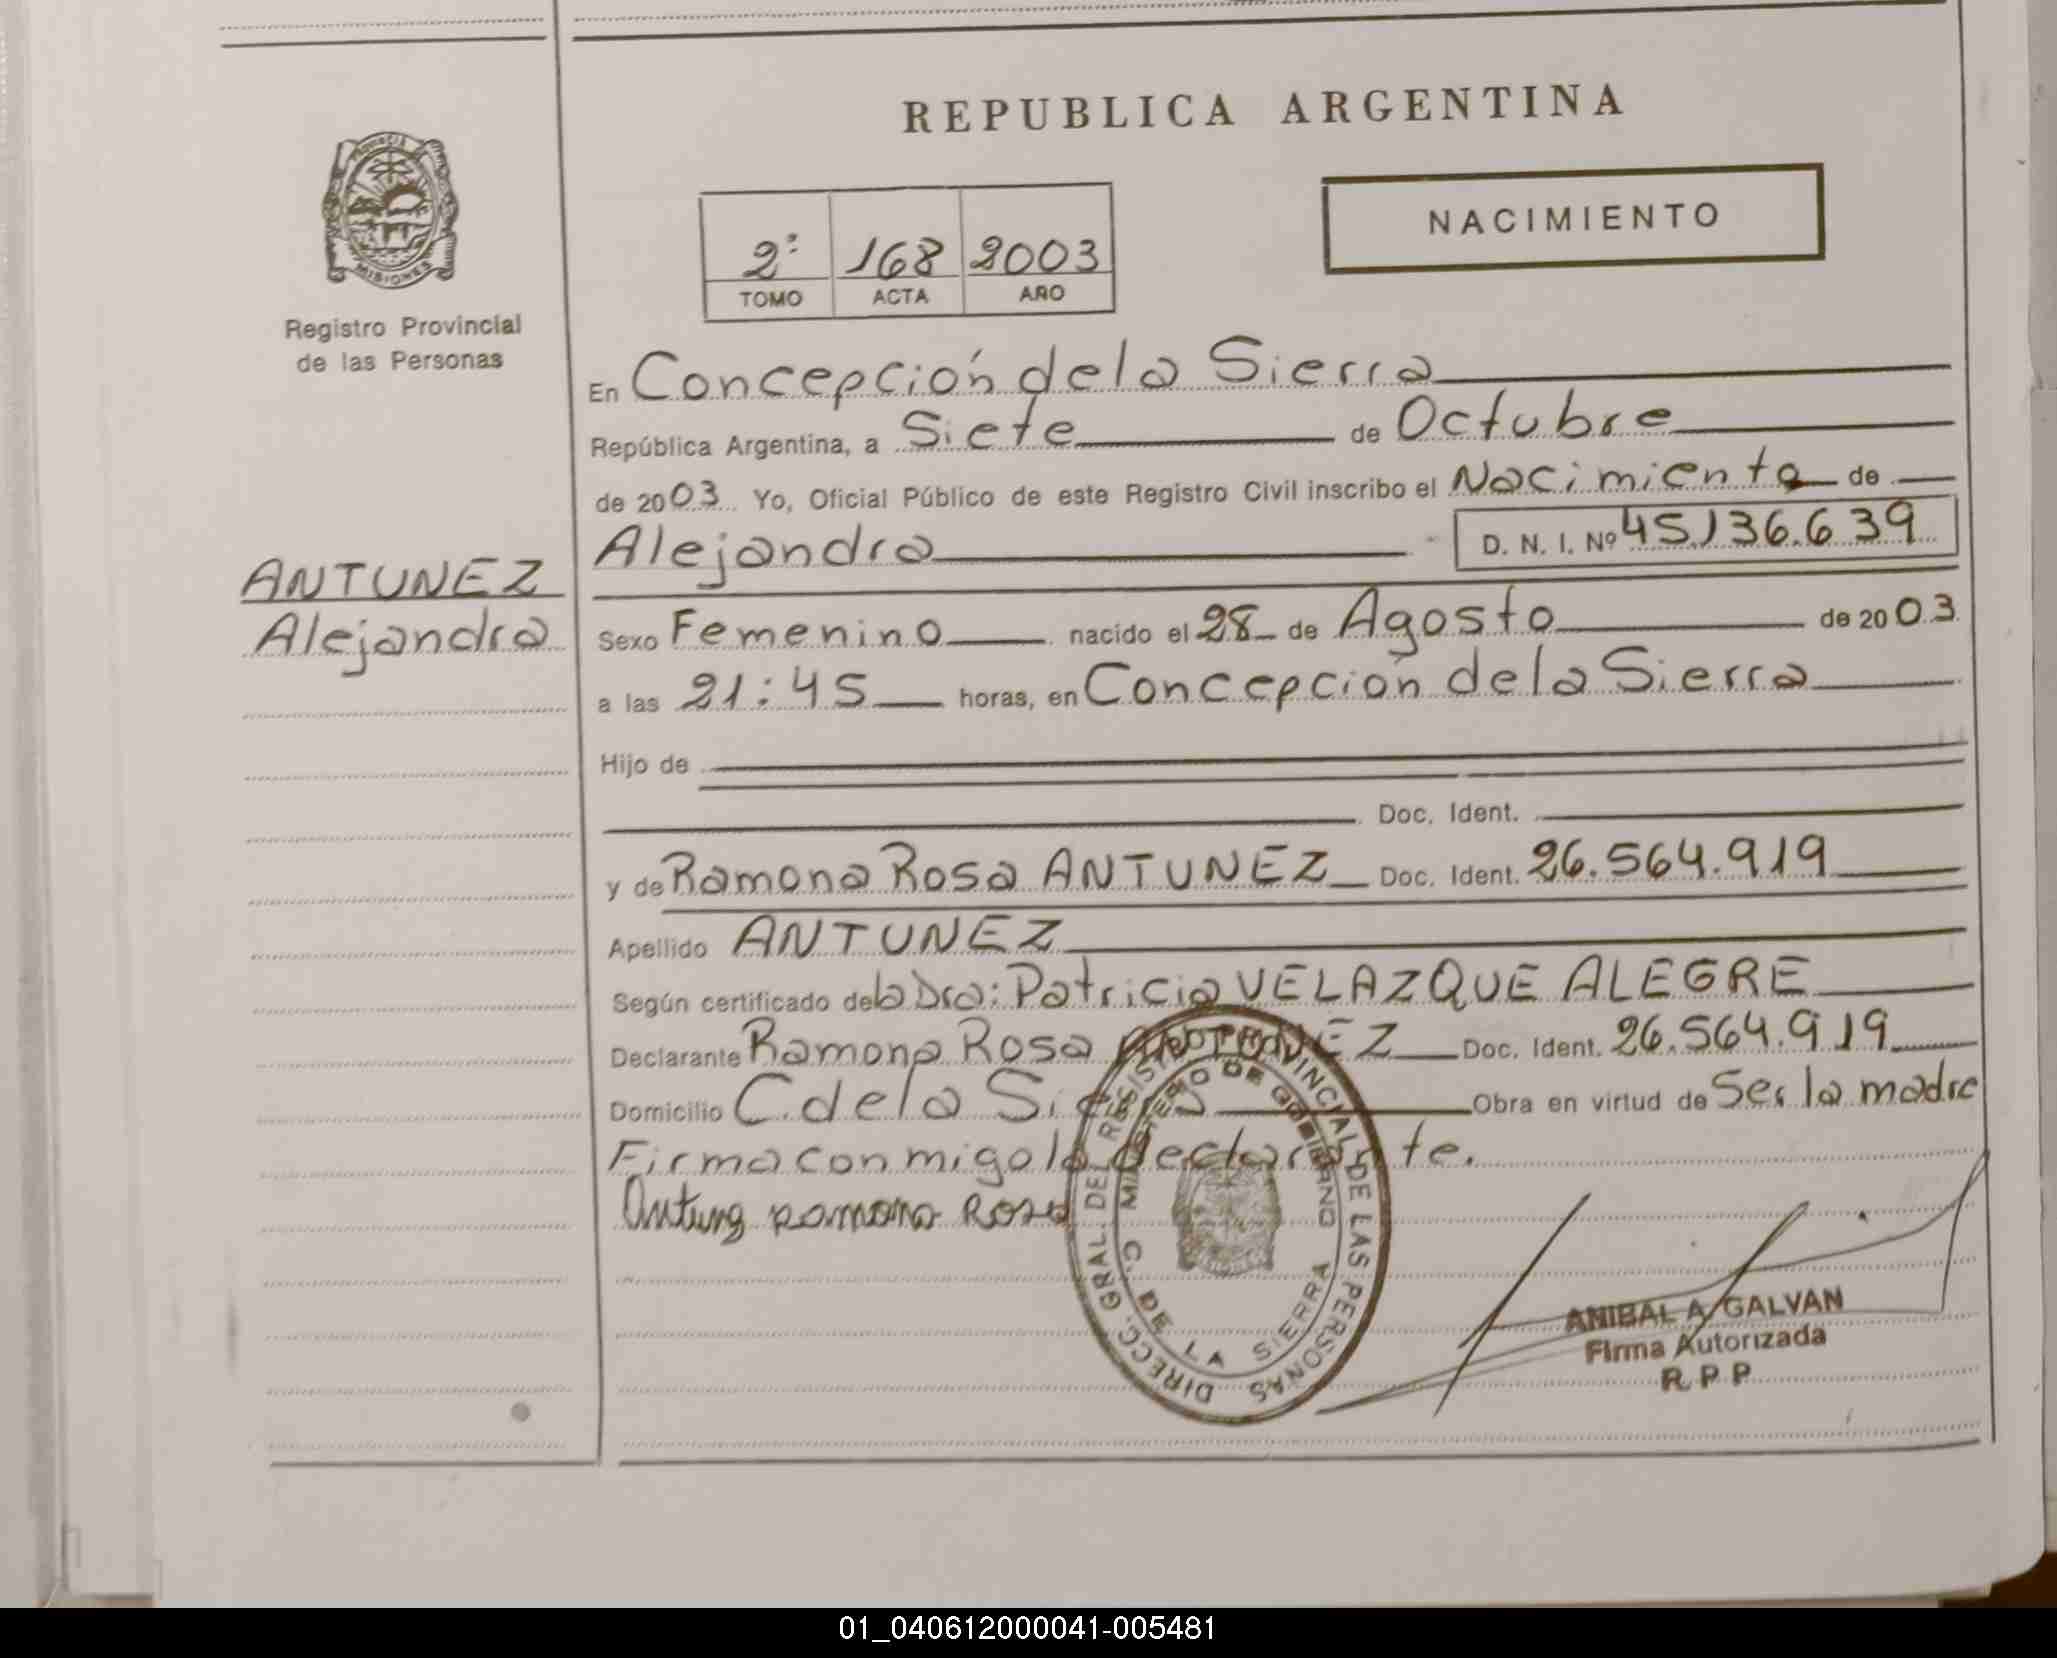 REPUBLICA ARGENTINA
PROVINCIA
MISIONES
Registro Provincial
de las Personas
2º 168 2003
TOMO ACTA AÑO
NACIMIENTO
En Concepción de la Sierra
República Argentina, a Siete de Octubre
de 2003 Yo, Oficial Público de este Registro Civil inscribo el Nacimiento de
Alejandra D. N. I. Nº 45.136.639
ANTUNEZ
Alejandra
Sexo Femenino nacido el 28 de Agosto de 2003
a las 21:45 horas, en Concepción de la Sierra
Hijo de
Doc. Ident.
y de Ramona Rosa ANTUNEZ Doc. Ident. 26.564.919
Apellido ANTUNEZ
Según certificado de la Dra: Patricia VELAZQUE ALEGRE
Declarante Ramona Rosa ANTUNEZ Doc. Ident. 26.564.919
Domicilio C. de la Sierra Obra en virtud de Ser la madre
Firma conmigo la declarante.
Antunez Ramona Rosa
DIRECC. GRAL. DEL REGISTRO PROVINCIAL DE LAS PERSONAS
MINISTERIO DE GOBIERNO
C. DE LA SIERRA
ANIBAL A. GALVAN
Firma Autorizada
R P P
01_040612000041-005481